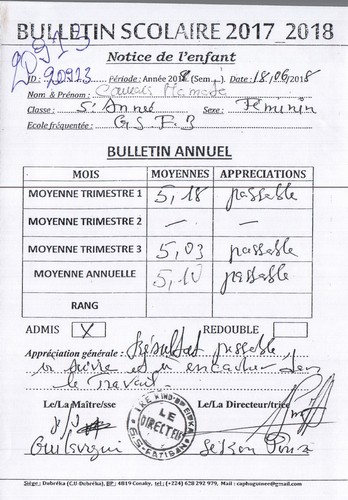 20913
BULLETIN SCOLAIRE 2017_2018
Notice de l'enfant
ID : 20913 Période : Année 2018 (Sem ) Date : 18/06/2018
Nom & Prénom :
Classe : 5e Année Sexe : Féminin
Ecole fréquentée :
BULLETIN ANNUEL
MOIS MOYENNES APPRECIATIONS
MOYENNE TRIMESTRE 1 5,18 passable
MOYENNE TRIMESTRE 2 — —
MOYENNE TRIMESTRE 3 5,03 passable
MOYENNE ANNUELLE 5,10 passable
RANG
ADMIS X REDOUBLE
Appréciation générale : Résultat passable
à suivre et à encadrer dans
le travail.
Le/La Maître/sse Le/La Directeur/trice
LE
DIRECTEUR
Siège : Dubréka (C.U-Dubréka), BP : 4819 Conakry, Tel : (+224) 628 292 979, Mail : caphuguinee@gmail.com